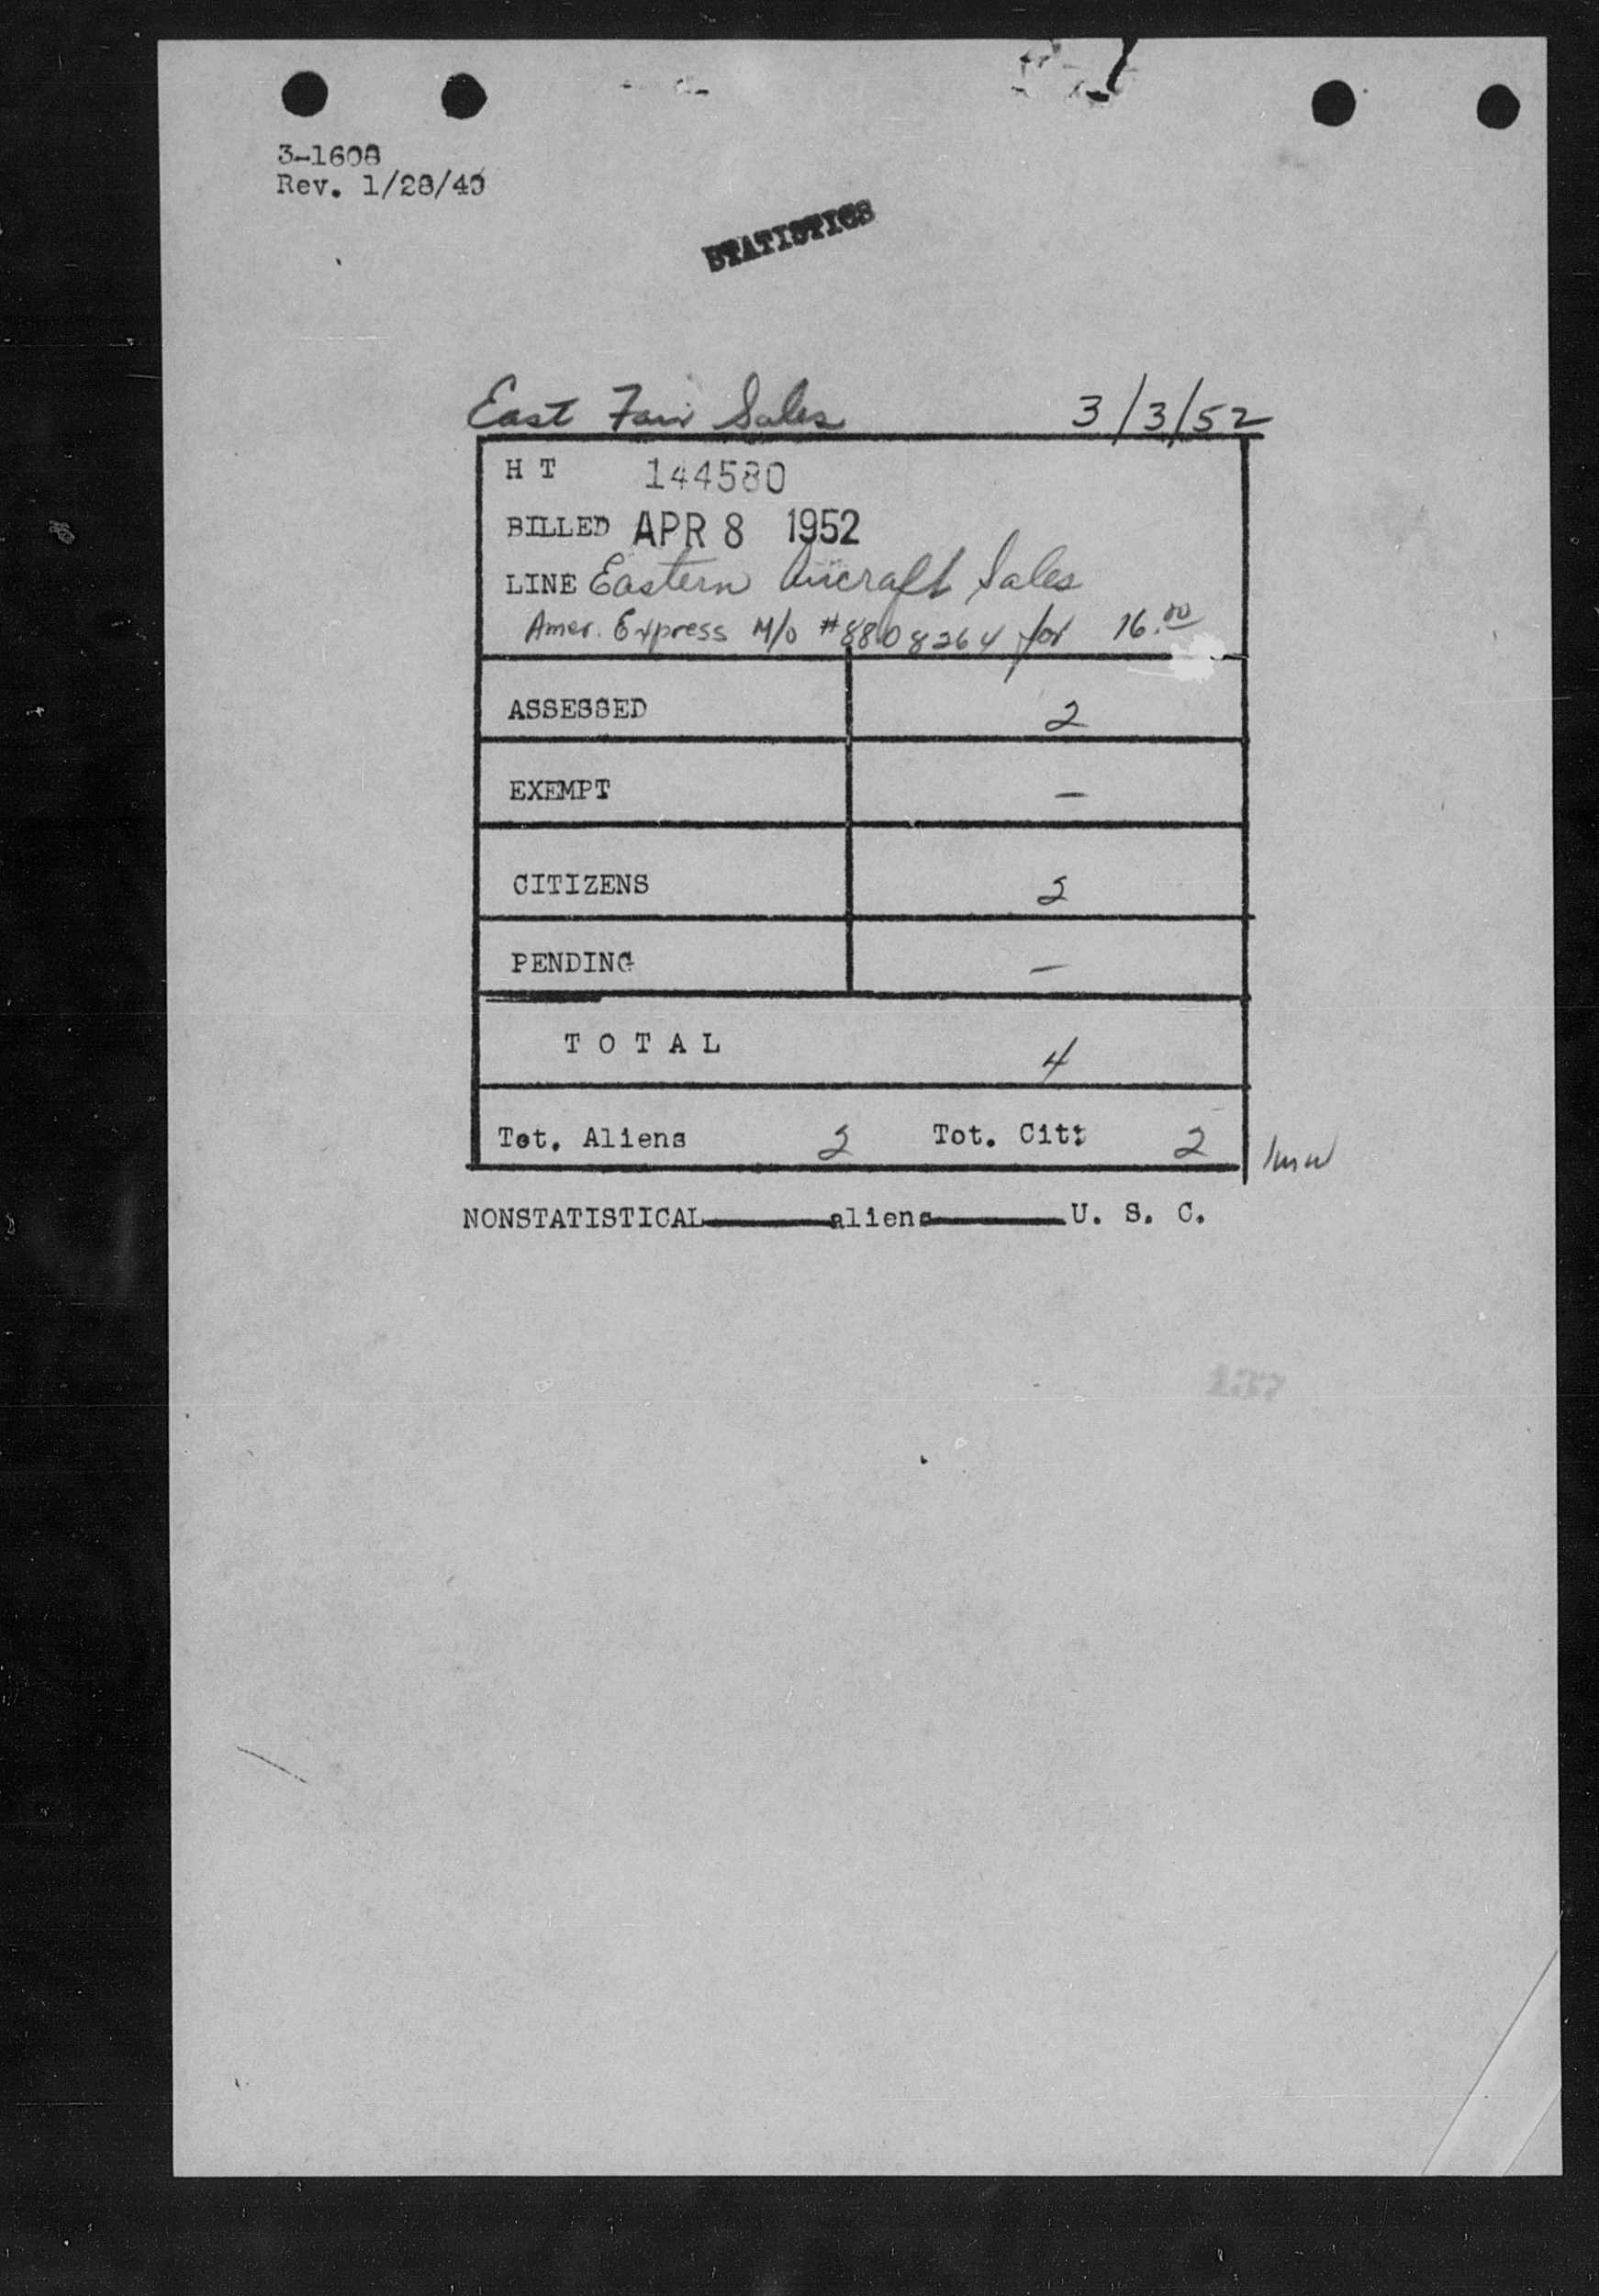 3-1608
Rev. 1/28/49
STATISTICS
East Fair Sales 3/3/52
H T 144580
BILLED APR 8 1952
LINE Eastern Aircraft Sales
Amer. Express M/o #8808264 for 16.00
ASSESSED 2
EXEMPT —
CITIZENS 2
PENDING —
T O T A L 4
Tot. Aliens 2 Tot. Cit: 2
NONSTATISTICAL aliens U. S. C.
137